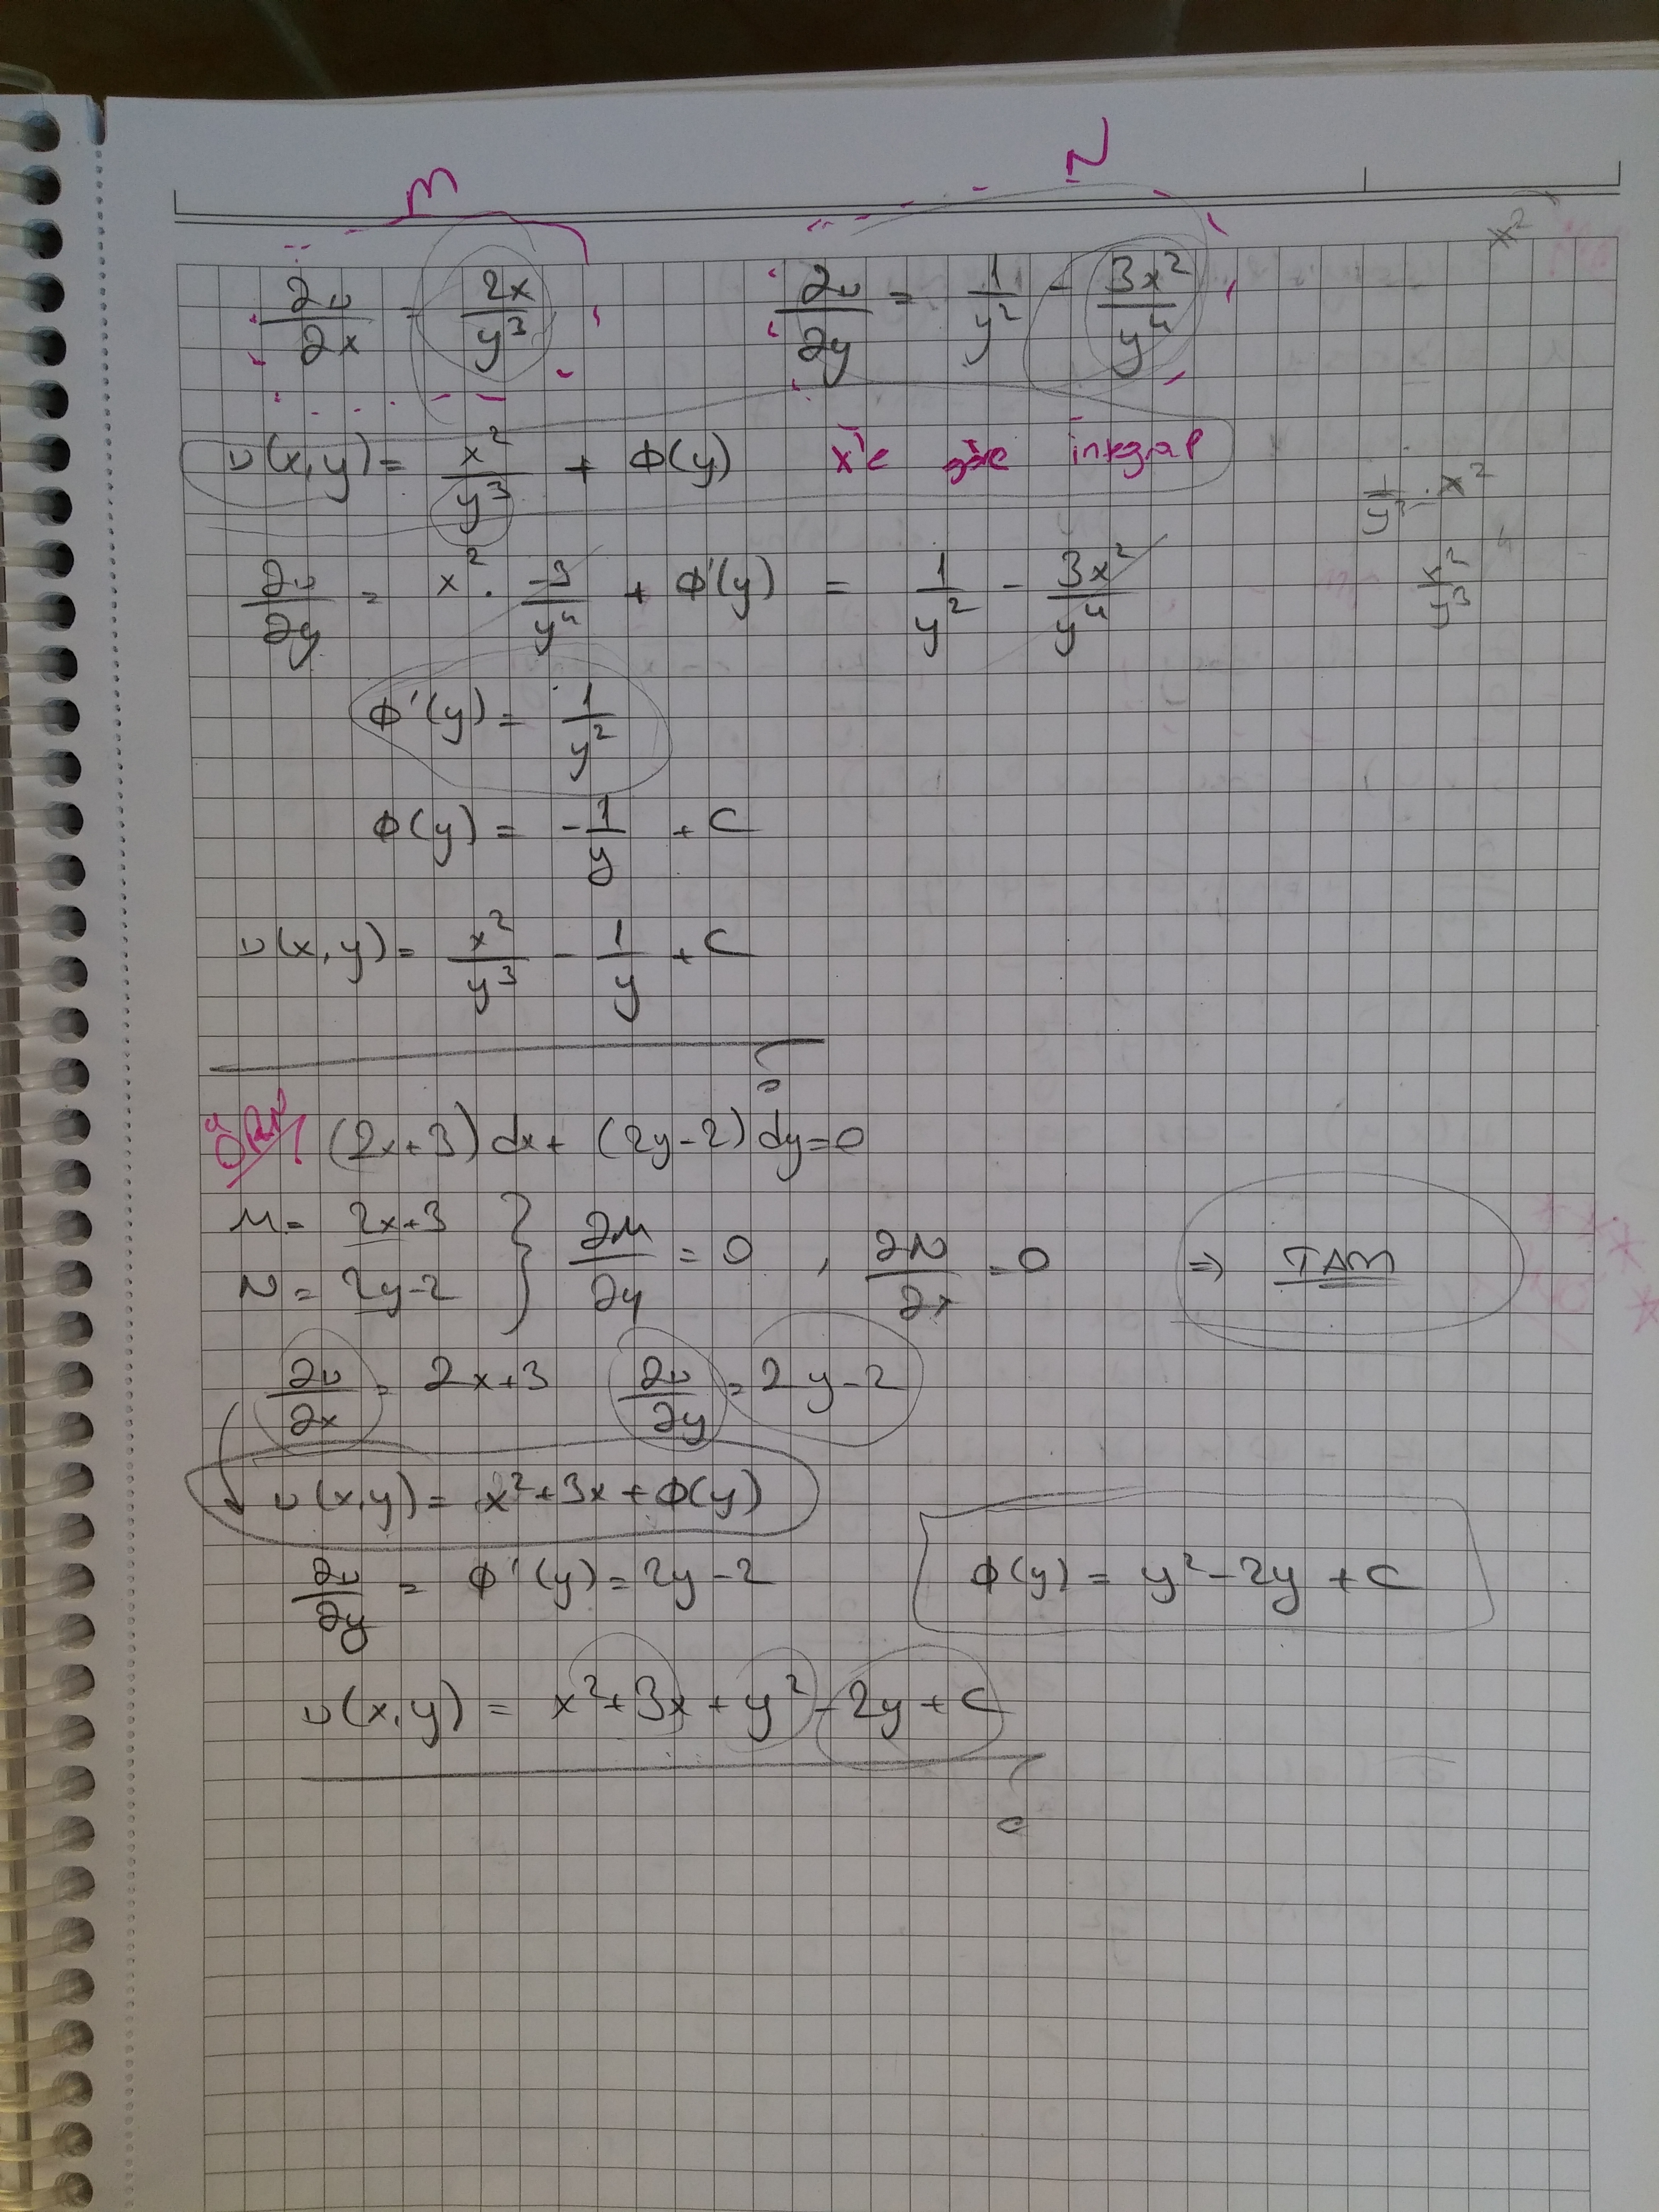 M N
x²
∂u/∂x = 2x/y³ ∂u/∂y = 1/y² - 3x²/y⁴
u(x,y) = x²/y³ + ϕ(y) x'e göre integral
1/y³ · x²
∂u/∂y = x² · -3/y⁴ + ϕ'(y) = 1/y² - 3x²/y⁴
x²/y³
ϕ'(y) = 1/y²
ϕ(y) = -1/y + C
u(x,y) = x²/y³ - 1/y + C
ÖRN (2x+3)dx + (2y-2)dy=0
M = 2x+3
N = 2y-2 } ∂M/∂y = 0 , ∂N/∂x = 0 ⇒ TAM
∂u/∂x = 2x+3 ∂u/∂y = 2y-2
u(x,y) = x²+3x+ϕ(y)
∂u/∂y = ϕ'(y) = 2y-2 ϕ(y) = y²-2y+C
u(x,y) = x²+3x+y²-2y+C